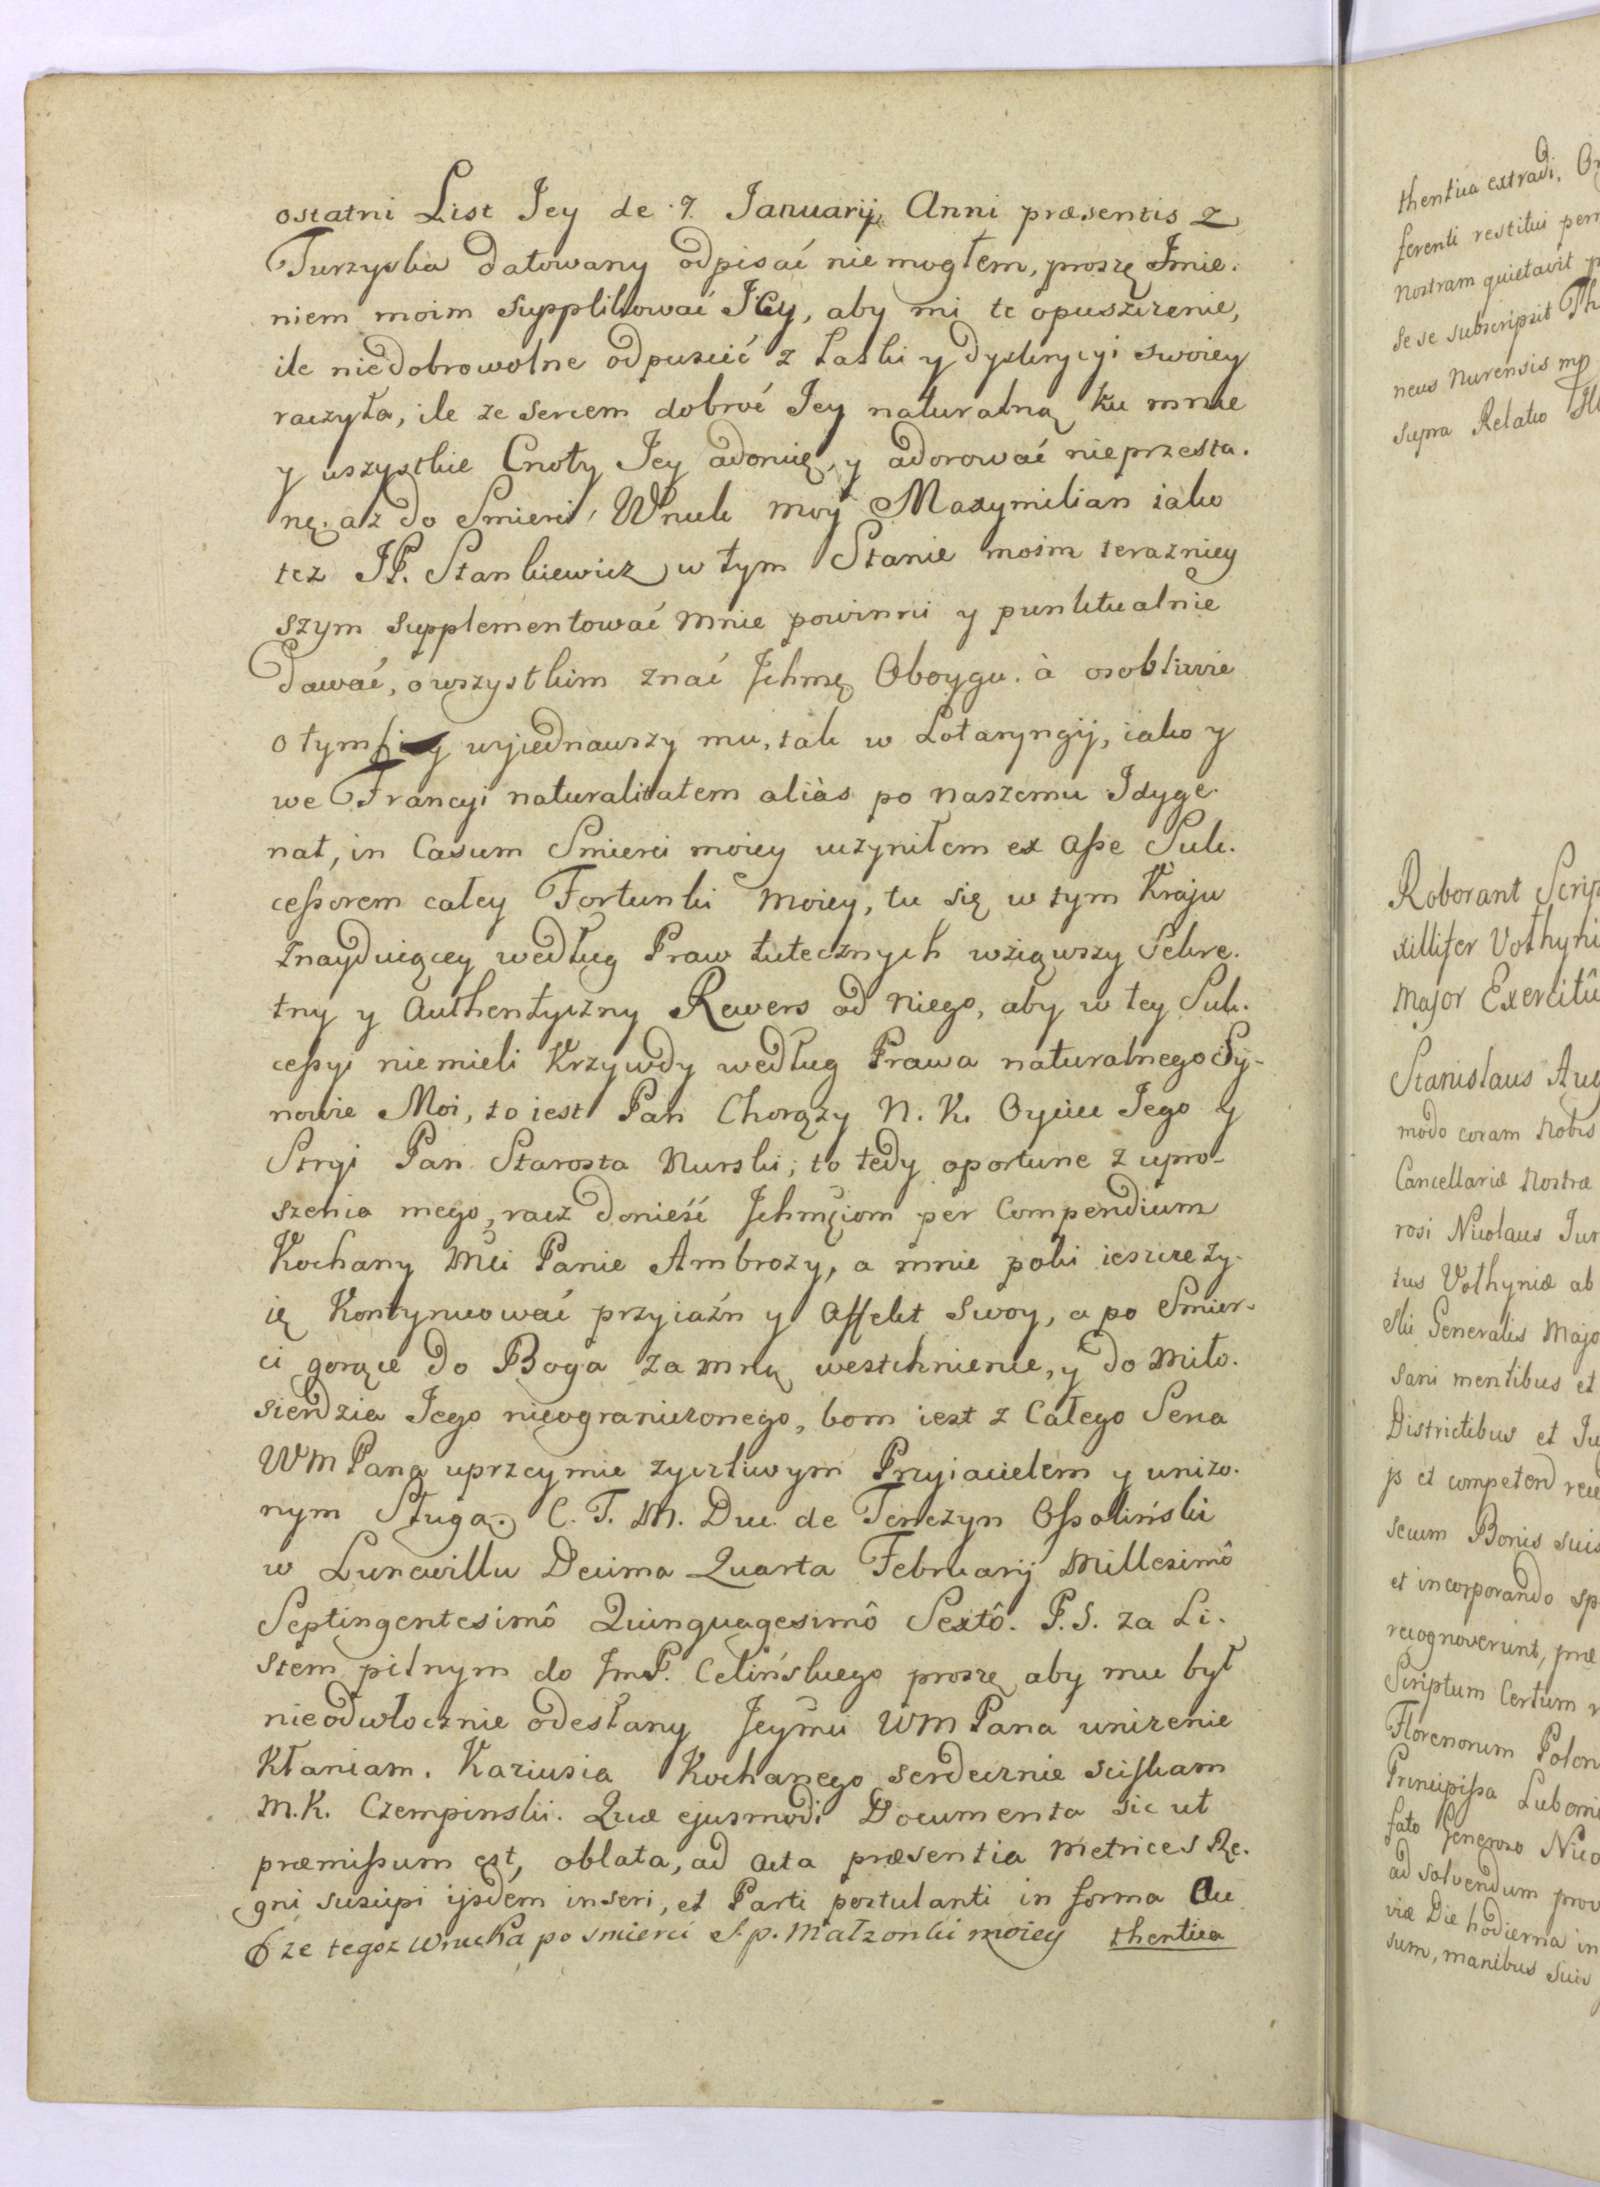 ostatni List Jey de 9. Januarij Anni præsentis z
Turzyska datowany odpisać nie mogłem, proszę Jmie.
niem moim supplikować Jey, aby mi te opuszczenie,
ile niedobrowolne odpuścić z Łaski y dyskrycyi swoiey
raczyła, ile ze sercem dobroć Jey naturalną ku mnie
y wszystkie Cnoty Jey adoruię, y adorować nieprzesta.
nę. aż do Smierci, Wnuk moy Maxymilian iako
też JP. Stankiewicz w tym Stanie moim terazniey
szym supplementować mnie powinni y punktualnie
dawać, o wszystkim znać Jchmę Oboygu. à osobliwie
o tym y wyjednawszy mu, tak w Lotaryngij, iako y
we Francyi naturalitatem aliàs po naszemu Jdyge.
nat, in Casum Smierci moiey uczyniłem ex Asse Suk.
cessorem całey Fortunki moiey, tu się w tym Kraju
znayduiącey według Praw tutecznych wziąwszy Sekre.
tny y Authentyczny Rewers od niego, aby w tey Suk.
cessyi nie mieli Krzywdy według Prawa naturalnego Sy-
nowie Moi, to iest Pan Chorąży N. K. Oyciec Jego y
Stryi Pan Starosta Nurski; to tedy oportune z upro-
szenia mego, racz donieść Jchmściom per Compendium
Kochany Mći Panie Ambroży, a mnie poki ieszcze ży-
ię Kontynuować przyiaźń y Affekt Swoy, a po Smier-
ci gorące do Boga za mną westchnienie, y do Miło.
sierdzia Jego nieograniczonego, bom iest z Całego Serca
WM Pana uprzeymie zyczliwym Przyiacielem y uniżo.
nym Sługą. C. T. M. Duc de Tenczyn Ossoliński
w Lunewillu Decima Quarta Februarij Millesimô
Septingentesimô Quinquagesimô Sextô. P. S. za Li.
stem pilnym do JmP. Celińskiego proszę aby mu był
nieodwłocznie odesłany Jeymći WM Pana uniżenie
Kłaniam. Kaziusia Kochanego serdecznie sciskam
M. K. Czempinski. Quæ ejusmodi Documenta sic ut
præmissum est, oblata, ad Acta præsentia Metrices Re.
gni suscipi ijsdem inseri, et Parti postulanti in forma Au
że tegoż Wnuka po smierci S. p. Małzonki moiey thentica
thentica extradi,
ferenti restitui
nostram quietavit
sese subscripsit
neus Nurensis mp
supra Relatio
Roborant
xillifer Volhyni
Major Exercitû
Stanislaus Aug
modo coram Nobis
Cancellariæ Nostræ
rosi Nicolaus
tus Volhyniæ ab
Generalis Majo
sani mentibus et
Districtibus et Ju
js et competend
secum Bonis suis
et incorporando sp
recognoverunt, præ
Scriptum Certum
Florenorum Polon
Principissa Lubomi
fato Generoso Nico
ad solvendum prov
viæ Die hodierna in
sum, manibus suis